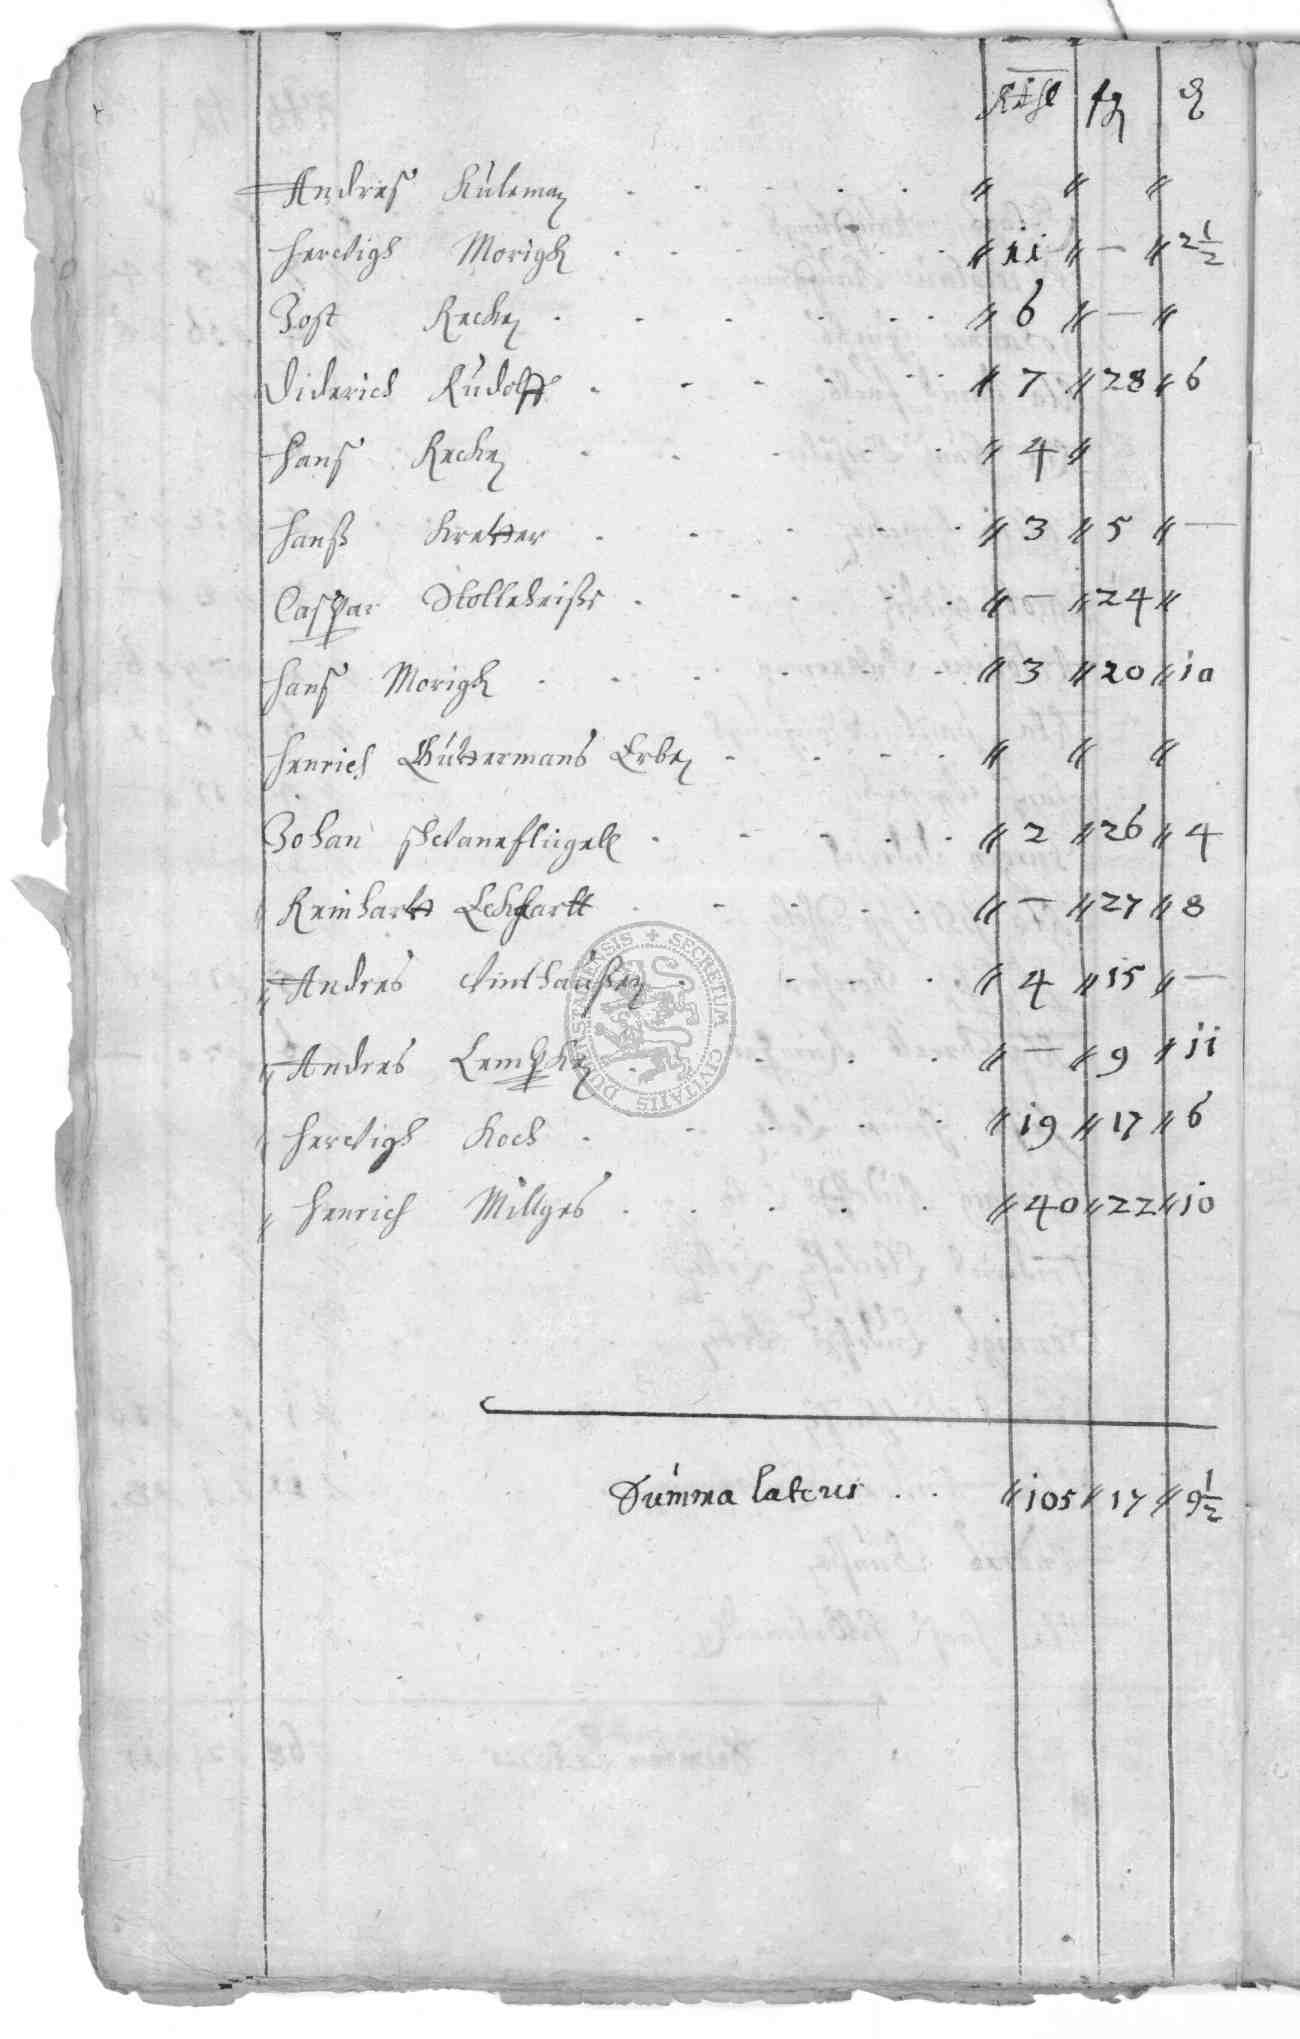 Rthl fg ₰
Andres Kuleman . . . . . „ „ „
Herwigh Morigk . . . . . „ 11 „ — „ 2½
Jost Recken . . . . . . „ 6 „ — „
Diderich Rudolff . . . . . . „ 7 „ 28 „ 6
Hans Recken . . . . . „ 4 „
Hanß Kretter . . . . . „ 3 „ 5 „ —
Caspar . . . . . „ — „ 24 „
Hans Morigk . . . . . . „ 3 „ 20 „ 10
Henrich Guttermans Erben . . . . „ „ „
Johan Schwaneflügell . . . . . „ 2 „ 26 „ 4
Reinhartt Eckhartt . . . . . „ — „ 27 „ 8
„ Andres Winthaußen . . . . „ 4 „ 15 „ —
„ Andres Lempken . . . . „ — „ 9 „ 11
Herwigh Koch . . . . . „ 19 „ 17 „ 6
„ Henrich Millges . . . . . „ 40 „ 22 „ 10
Summa lateris . . „ 105 „ 17 „ 9½
SECRETUM CIVITATIS DUDERSTADENSIS